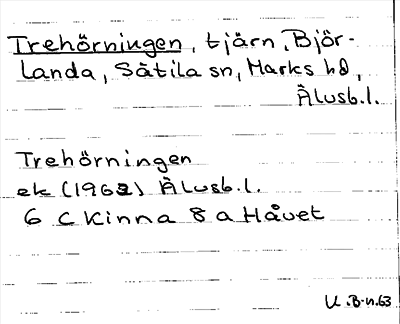 Trehörningen, tjärn, Björ-
landa, Sätila sn, Marks hd,
Älvsb.l.
Trehörningen
ek (1962) Älvsb.l.
6 C Kinna 8 a Håvet
U.B-n.63